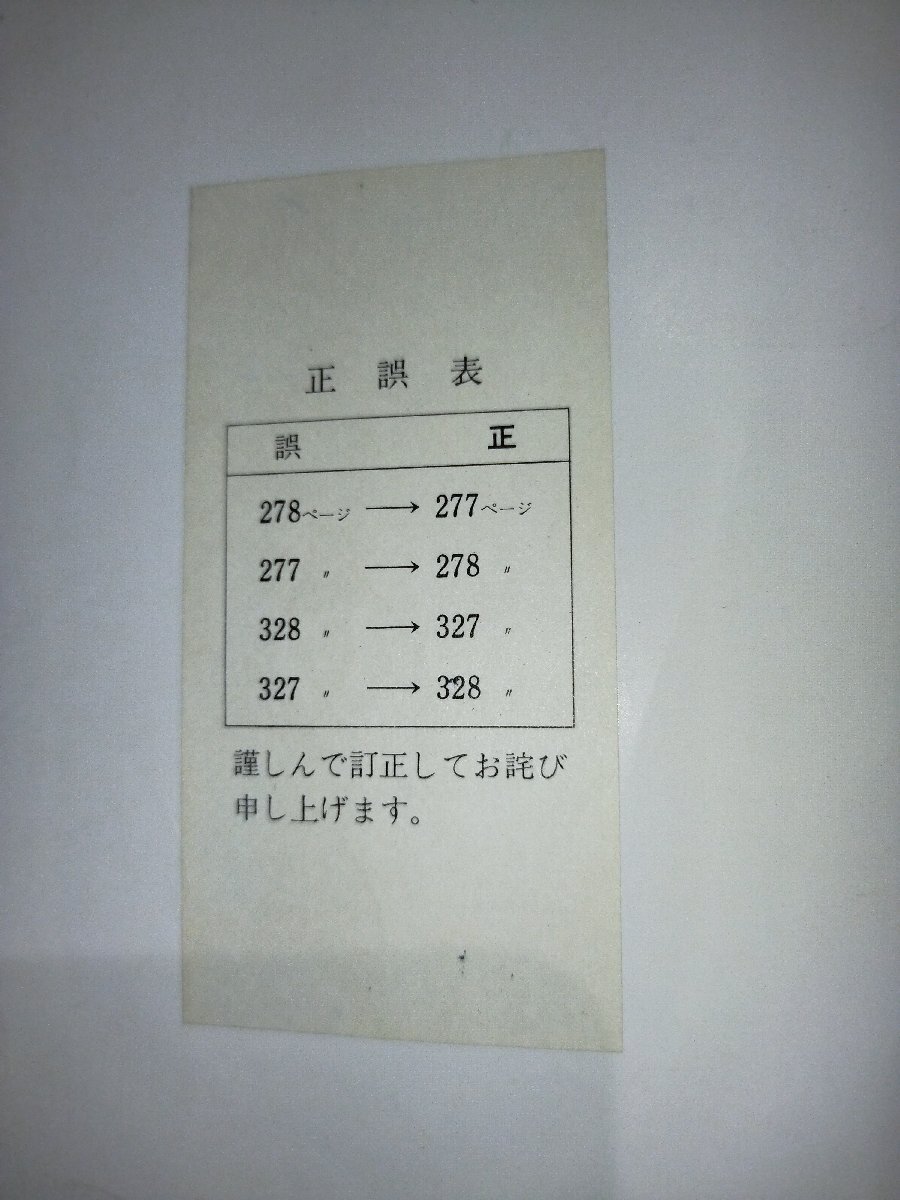 正誤表
誤 正
278ページ → 277ページ
277 〃 → 278 〃
328 〃 → 327 〃
327 〃 → 328 〃
謹しんで訂正してお詫び
申し上げます。